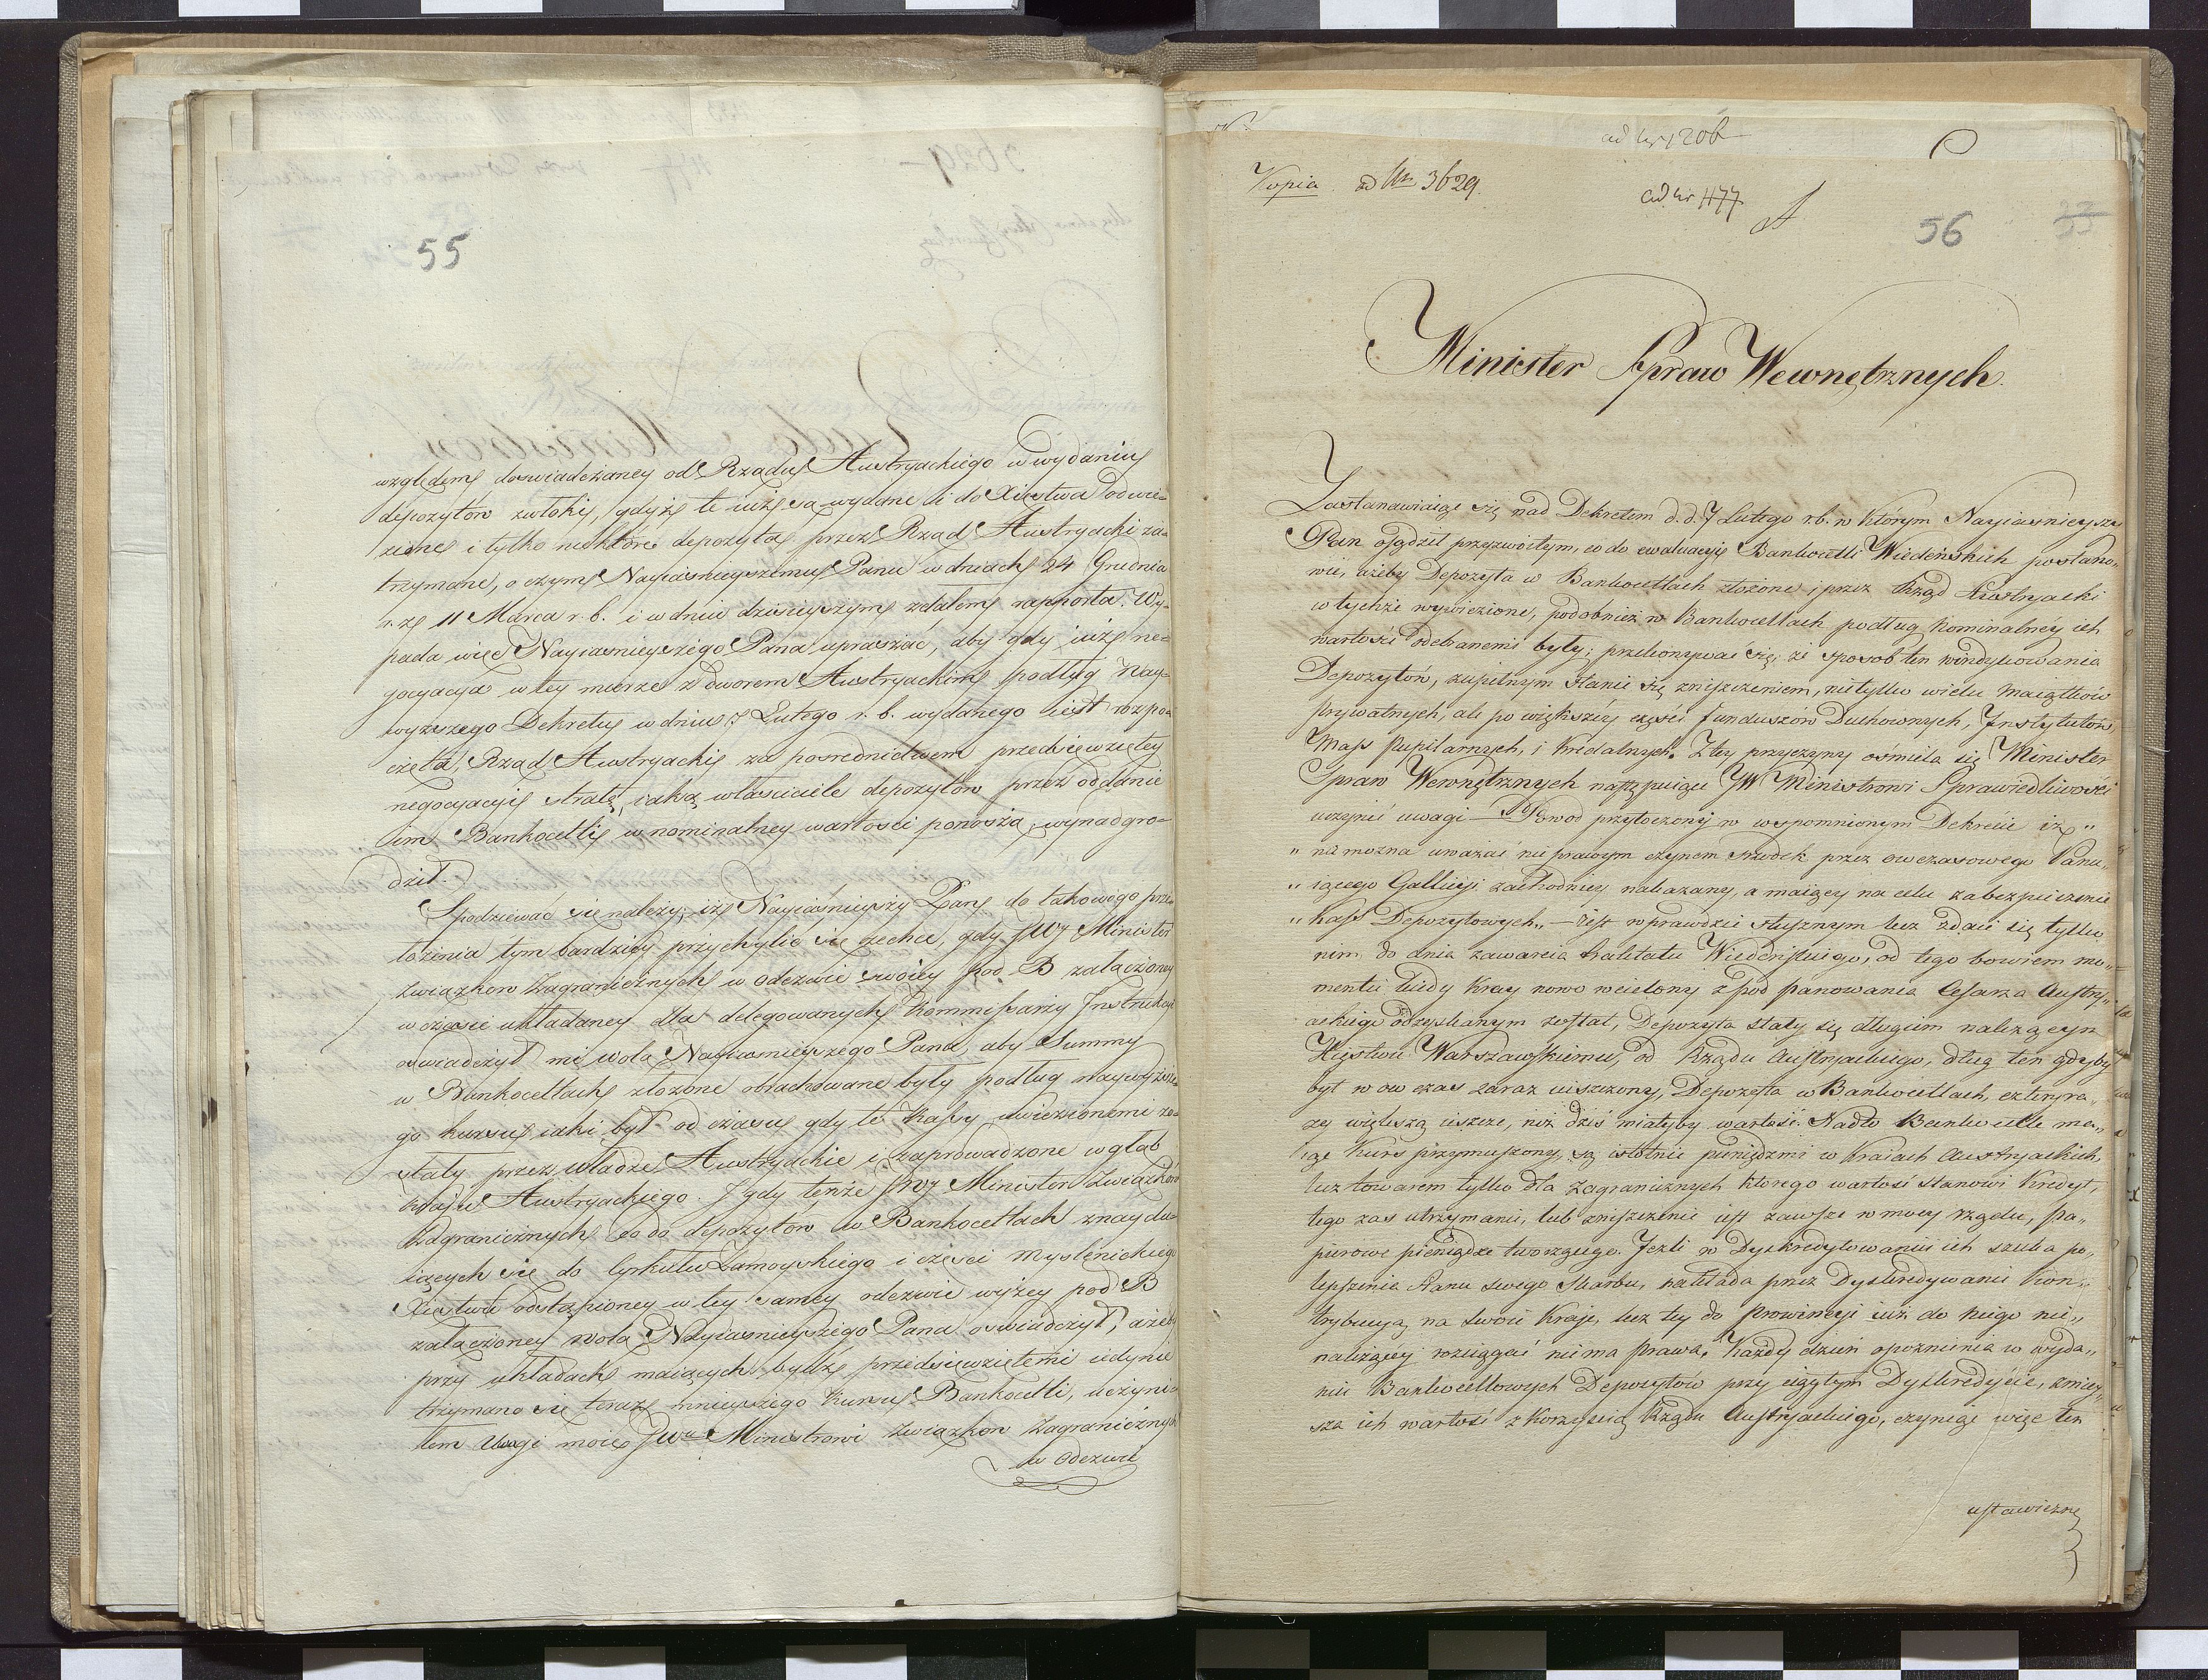 55
względem doswiadczaney od Rządu Austryackiego w wydaniu
depozytow zwłoki, gdyż te iuż są wydane i do Xięstwa odwie-
zione i tylko niektóre depozyta przez Rząd Austryacki za-
trzymane, o czym Nayiasnieyszemu Panu w dniach 24 Grudnia
r. z. 11 Marca r. b. i w dniu dzisieyszym zdałem rapporta. Wy-
pada więc Nayiasnieyszego Pana upraszać, aby gdy iuż ne-
gocyacya w tey mierze z dworem Austryackim podług Nay-
wyzszego Dekretu w dniu 7 Lutego r. b. wydanego iest rozpo-
częta, Rząd Austryacki za posrednictwem przedsięwziętey
negocyacyi stratę, iaką własciciele depozytow przez oddanie
im Bankocetli w nominalney wartosci ponoszą, wynadgro-
dził.
Spodziewać się należy, iż Nayiaśnieyszy Pan do takowego prze-
łożenia tym bardziey przychylić się zechce, gdy JWy Minister
Związkow Zagranicznych w odezwie swoiey pod B załączoney
w czasie układaney dla delegowanych Kommissarzy Instrukcyi
oswiadczył mi wolą Nayiasnieyszego Pana, aby Summy
w Bankocetlach złozone obrachowane były podług naywyższe-
go kursu iaki był od czasu gdy te Kassy uwiezionemi zo-
stały przez władze Austryackie i zaprowadzone w głąb
kraju Austryackiego. I gdy tenże JWy Minister Związków
Zagranicznych co do depozytow w Bankocetlach znaydu-
iących się do Cyrkułu Zamoyskiego i części Myslenickiego
Xięstwu odstąpioney w tey samey odezwie wyżey pod B
załączoney wolą Nayiasnieyszego Pana oswiadczył, ażeby
przy układach maiących bydź przedsięwziętemi iedynie
trzymano się teraz mnieyszego kursu Bankocetli, uczyni-
łem Uwagi moie JWu Ministrowi Związkow Zagranicznych
w odezwie
ad Nr 1206
Kopia ad Nr 3629.
ad Nr 1177
A
56
Minister Spraw Wewnętrznych.
Zastanawiaiąc się nad Dekretem d. d. 7 Lutego r. b. w którym Nayiasnieyszy
Pan osądził przyzwoitym, co do ewaluacyi Bankocetli Wiedeńskich postano-
wić, ażeby Depozyta w Bankocetlach złożone i przez Rząd Austryacki
w tychże wywiezione, podobnież w Bankocetlach podług Nominalnéy ich
wartości odebranemi były; przekonywać się, że sposob ten windykowania
Depozytów, zupełnym stanie się zniszczeniem, nietylko wielu Maiątków
prywatnych, ale po większéy części funduszów Duchownych, Instytutów,
Mass Pupilarnych, i Kredalnych. Z tey przyczyny ośmiela się Minister
Spraw Wewnętrznych następuiące JW Ministrowi Sprawiedliwości
uczynić uwagi — Powod przytoczony w wspomnionym Dekrecie iż „
„ nie można uważać nieprawym czynem szrodek przez owczasowego Panu„
„ iącego Gallicyi zachodniey nakazany, a maiący na celu zabezpieczenie
„ kass Depozytowych„ — iest wprawdzie słusznym lecz zdaie się tylko
nim do dnia zawarcia Traktatu Wiedeńskiego, od tego bowiem mo„
mentu kiedy Kray nowo wcielony z pod panowania Cesarza Austry„
ackiego odzyskanym został, Depozyta stały się długiem należącym
Xięstwu Warszawskiemu, od Rządu Austryackiego, dług ten gdyby
był w ow czas zaraz uiszczony, Depozyta w Bankocetlach, czteryra„
zy większą ieszcze, niż dziś miałyby wartość. Nadto Bankocetle ma„
iąc Kurs przymuszony, są istotnie pieniędzmi w Kraiach Austryackich,
lecz towarem tylko dla Zagranicznych którego wartość stanowi Kredyt,
tego zas utrzymanie, lub zniszczenie iest zawsze w mocy rządu, pa„
pierowe pieniądze tworzącego. Jeżli w Dyskredytowaniu ich szuka po„
lepszenia stanu swego Skarbu, nakłada przez Dyskredywanie Kon„
trybucyą na swoie Kraie, lecz tey do Prowincyi iuż do niego nie„
należącey rozciągać niema prawa, Każdy dzień opoznienia w wyda„
niu Bankocetlowych Depozytow przy ciągłym Dyskredycie, zmiey„
sza ich wartość z korzyscią Rządu Austryackiego, czyniąc więc ten
ustawiczne